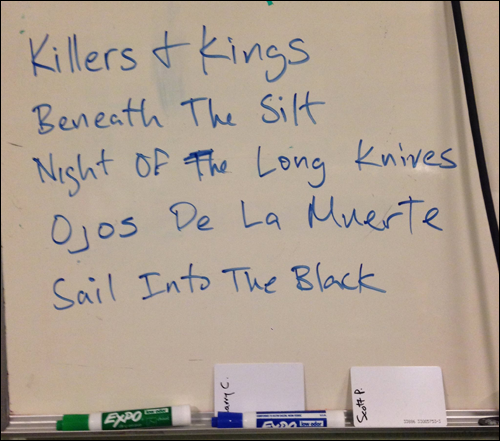 Killers + Kings
Beneath The Silt
Night Of The Long Knives
Ojos De La Muerte
Sail Into The Black
arry C.
Scott P.
EXPO low odor
EXPO low odor